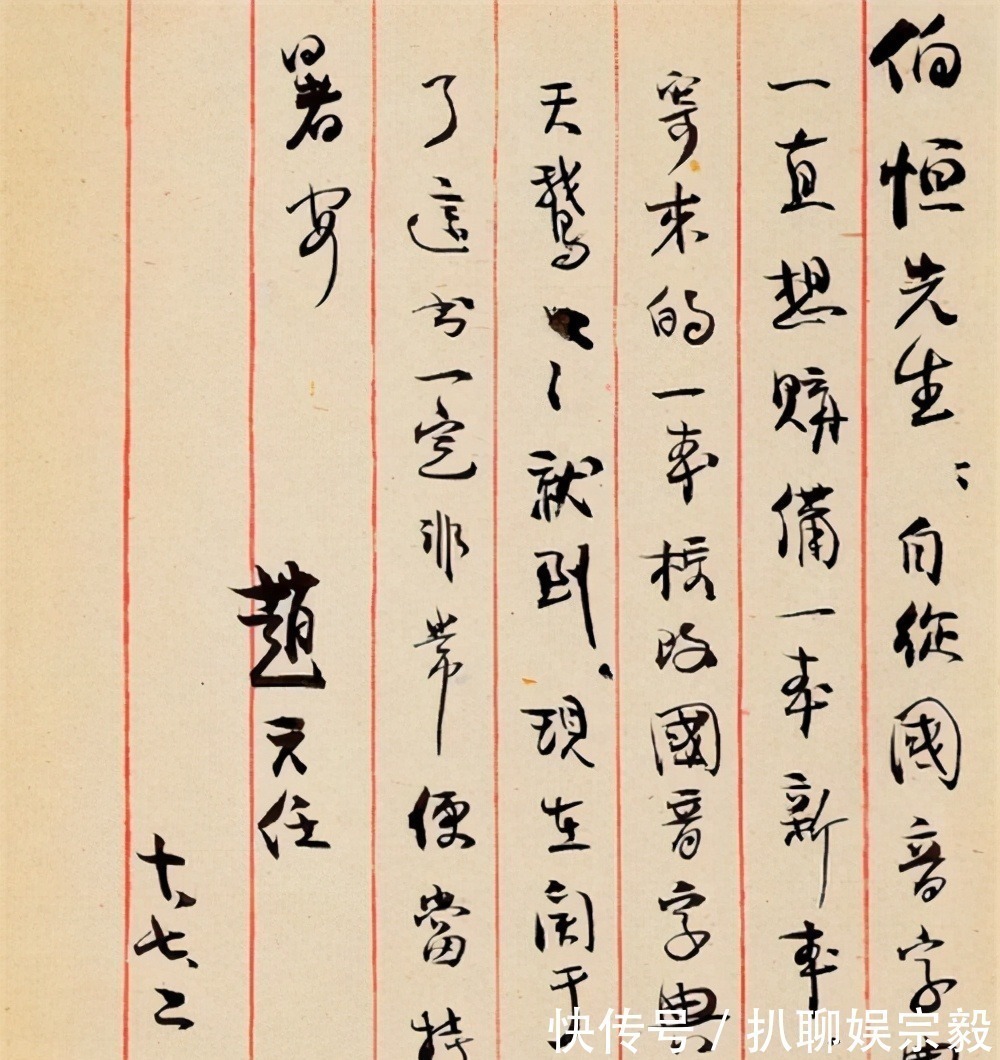 伯恒先生：自從國音字
一直想購備一本新本
寄來的一本校改國音字典
天就到、現在関于
了這书一定非常便當
暑安
趙元任
十、七、二
快传号/扒聊娱宗毅